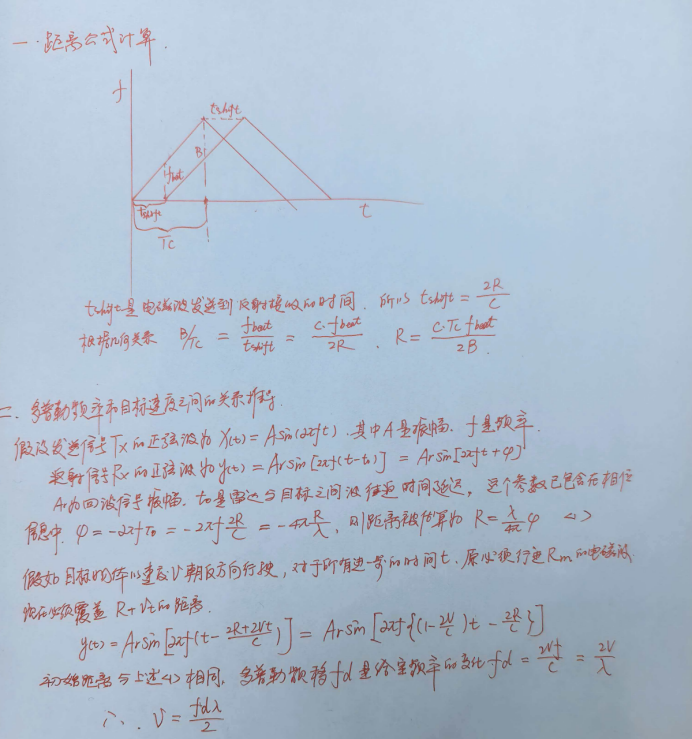 一.距离公式计算.
f
tshift
B
fbeat
tshift
t
Tc
tshift是电磁波发送到反射接收的时间. 所以 tshift = 2R/C
根据几何关系 B/Tc = fbeat/tshift = C·fbeat/2R . R = C·Tc fbeat/2B.
二. 多普勒频率和目标速度之间的关系推导.
假设发送信号Tx的正弦波为 X(t) = Asin(2πft) .其中A是振幅. f是频率.
反射信号Rx的正弦波为y(t) = Ar sin[2πf(t-t0)] = Ar sin[2πft+φ]
Ar为回波信号振幅. t0是雷达与目标之间波往返时间延迟, 这个参数已包含在相位
信息中. φ = -2πfT0 = -2πf 2R/C = -4π R/λ , 则距离被估算为 R = λ/4π φ <1>
假如目标物体以速度V朝反方向行驶, 对于所有进一步的时间t. 原必须行进Rm的电磁波
现在必须覆盖 R+Vt的距离.
y(t) = Ar sin[2πf(t - 2R+2Vt/C)] = Ar sin[2πf{(1-2V/C)t - 2R/C}]
初始距离与上述<1>相同, 多普勒频移fd是给定频率的变化 fd = 2Vf/C = 2V/λ
∴ V = fdλ/2